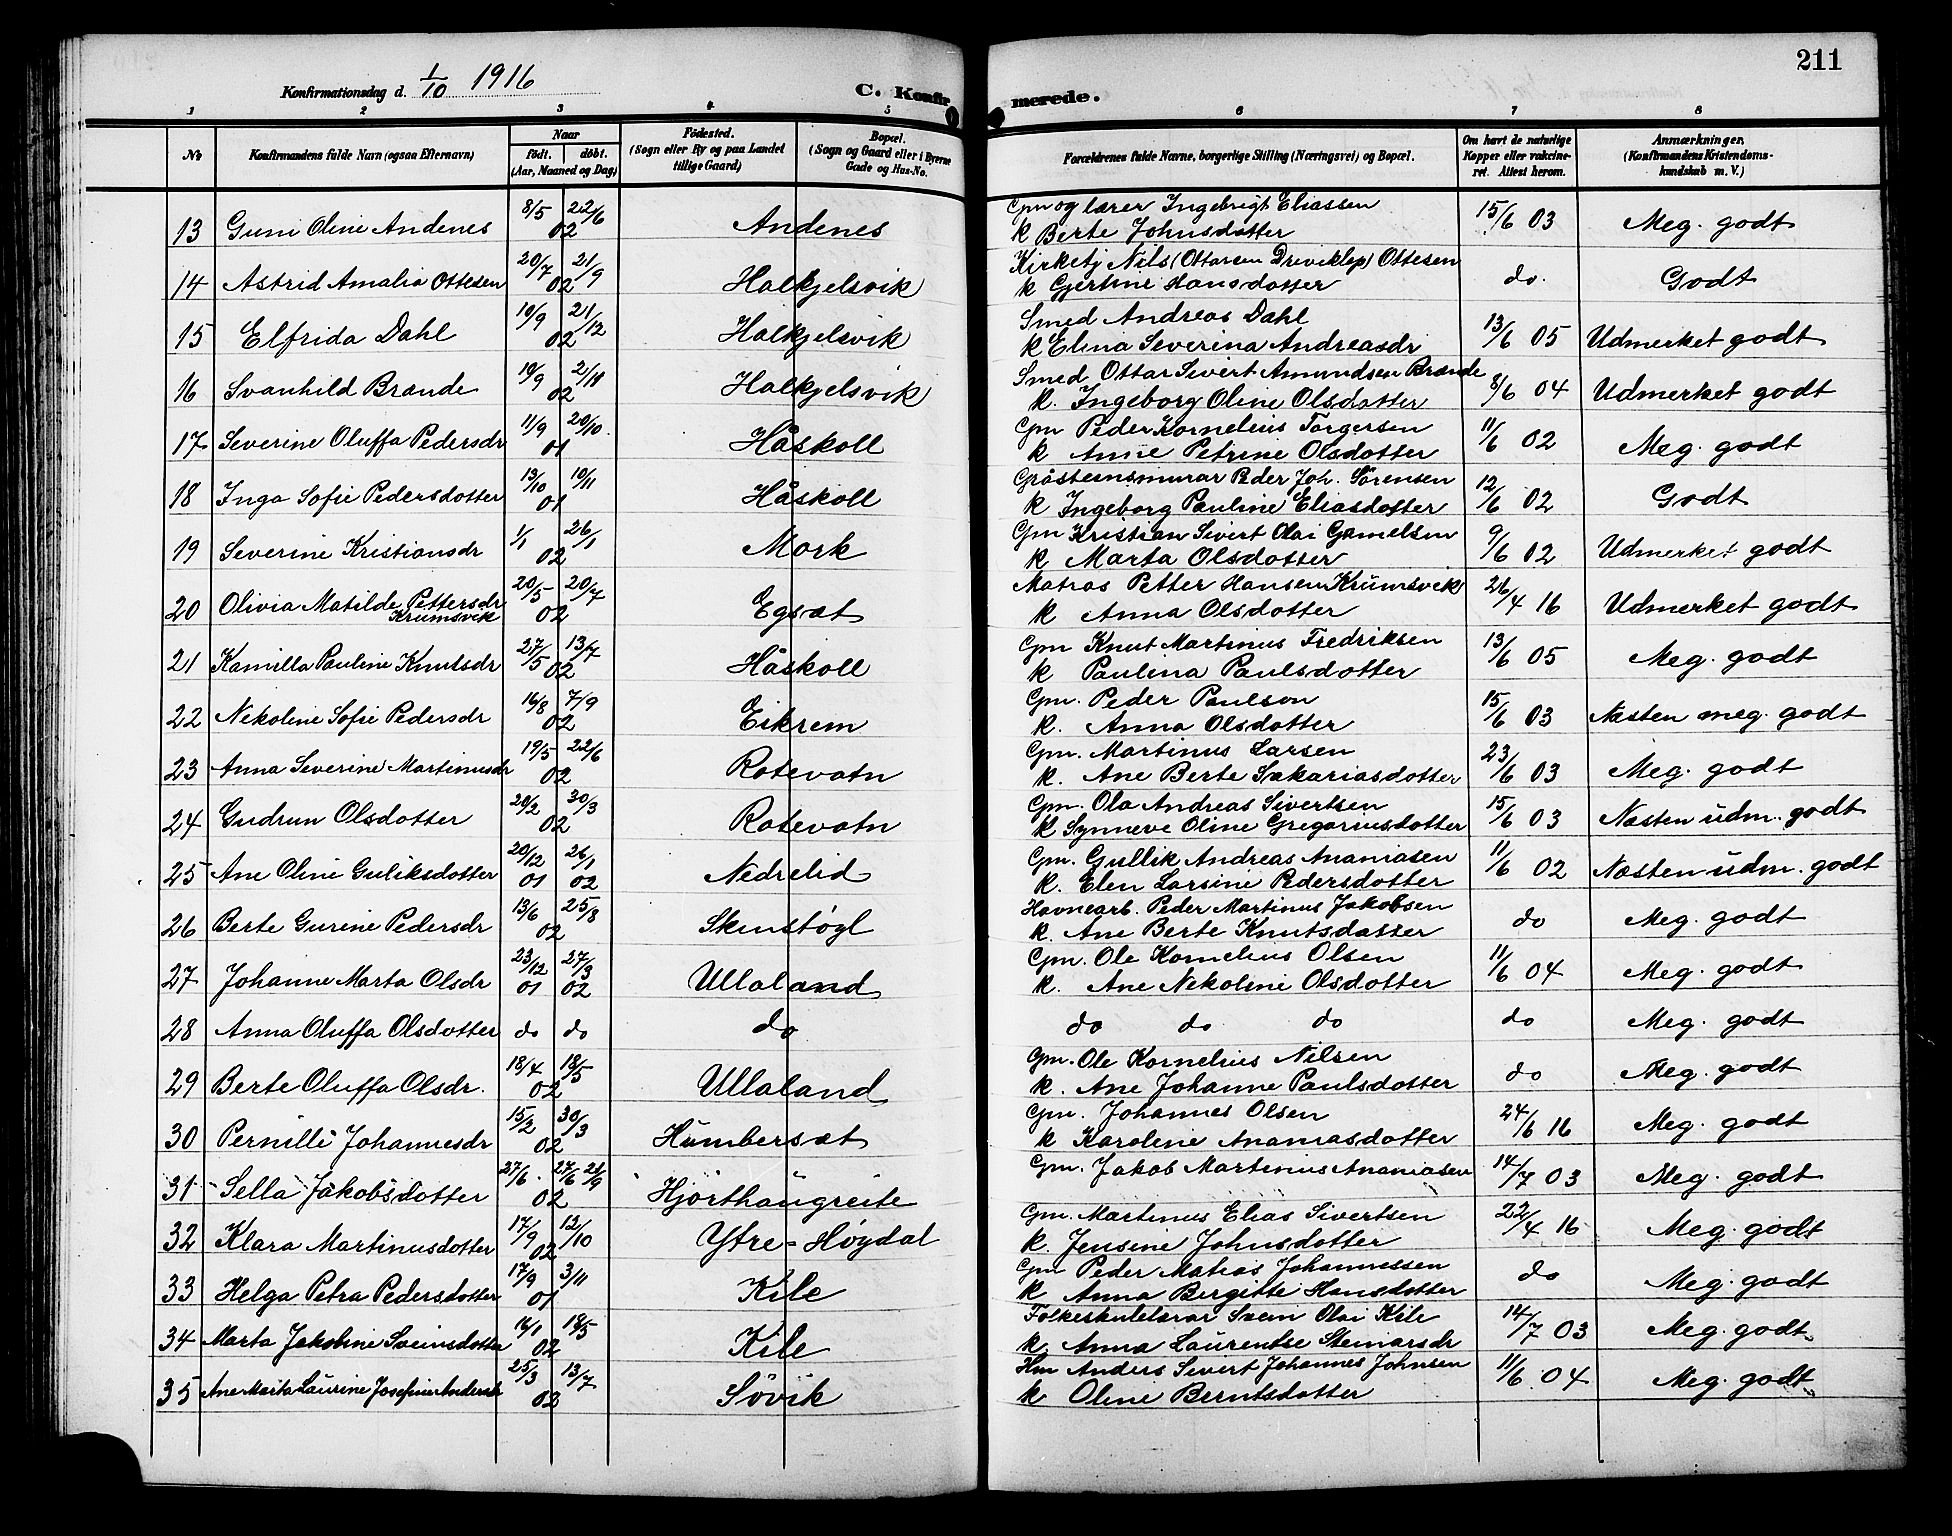 211
Konfirmationsdag d. 1/10 1916
C. Konfirmerede.
1 2 3 4 5 6 7 8
No
Konfirmandens fulde Navn (ogsaa Efternavn)
Naar
født. døbt.
(Aar, Maaned og Dag)
Fødested.
(Sogn eller By og paa Landet tillige Gaard)
Bopæl.
(Sogn og Gaard eller i Byerne Gade og Hus-No.
Forældrenes fulde Navne, borgerlige Stilling (Næringsvei) og Bopæl.
Om havt de naturlige Kopper eller vakcineret. Attest herom.
Anmærkninger.
(Konfirmandens Kristendomskundskab m. V.)
13 Guni Oline Andenes 8/5 22/6 02 Andenes Gpm og lærer Ingebrigt Eliassen 15/6 03 Meg. godt
k Berte Johnsdotter
14 Astrid Amalia Ottesen 20/7 21/9 02 Halkjelsvik Kirketj Nils (Ottarsen Dreviklep) Ottesen do. Godt
k Gjertine Hansdotter
15 Elfrida Dahl 10/9 21/12 02 Halkjelsvik Smed Andreas Dahl 13/6 05 Udmerket godt
k Elina Severina Andreasdr
16 Svanhild Brande 19/9 2/11 02 Halkjelsvik Smed Ottar Sivert Amundsen Brande 8/6 04 Udmerket godt
k. Ingeborg Oline Olsdotter
17 Severine Oluffa Pedersdr 11/9 20/10. 01 Håskoll Gpm Peder Kornelius Torgersen 11/6 02 Meg. godt
k Anne Petrine Olsdotter
18 Inga Sofie Pedersdotter 13/10 10/11 01 Håskoll Gråsteinsmurar Peder Joh. Sørensen 12/6 02 Godt
k Ingeborg Pauline Eliasdotter
19 Severine Kristiansdr 1/1 26/1 02 Mork Gpm Kristian Sivert Olai Gamelsen 9/6 02 Udmerket godt
k Marta Olsdotter
20 Olivia Matilde Pettersdr Krumsvik 20/5 20/7 02 Egsæt Matros Petter Hansen Krumsvik 26/4 16 Udmerket godt
k Anna Olsdotter
21 Kamilla Pauline Knutsdr 27/5 13/7 02 Håskoll Gpm Knut Martinus Fredriksen 13/6 05 Meg. godt
k Paulina Paulsdotter
22 Nekoline Sofie Pedersdr 16/8 7/9 02 Eikrem Gpm. Peder Paulson 15/6 03 Næsten meg. godt
k. Anna Olsdotter
23 Anna Severine Martinusdr 19/5 22/6 02 Rotevatn Gpm. Martinus Larsen 23/6 03 Meg. godt
k. Ane Berte Sakariasdotter
24 Gudrun Olsdotter 20/2 30/3 02 Rotevatn Gpm. Ola Andreas Sivertsen 15/6 03 Næsten udm. godt
k Synneve Oline Gregoriusdotter
25 Ane Oline Guliksdotter 20/12 01 26/1 02 Nedrelid Gpm. Gullik Andreas Ananiasen 11/6 02 Næsten udm. godt
k. Elen Larsine Pedersdotter
26 Berte Gurine Pedersdr 13/6 25/8 02 Skinstøgl Havnearb. Peder Martinus Jakobsen do Meg. godt
k. Ane Berte Knutsdatter
27 Johanne Marta Olsdr 23/12 01 27/3 02 Ullaland Gpm. Ole Kornelius Olsen 11/6 04 Meg. godt
k. Ane Nekoline Olsdotter
28 Anna Oluffa Olsdotter do do do do do do do Meg. godt
29 Berte Oluffa Olsdr. 18/4 18/5 02 Ullaland Gpm. Ole Kornelius Nilsen do Meg. godt
k. Ane Johanne Paulsdotter
30 Pernille Johannesdr 15/2 30/3 02 Humbersæt Gpm. Johannes Olsen 24/6 16 Meg. godt
k Karoline Ananiasdotter
31 Sella Jakobsdotter 27/6. 27/6 21/9 02 Hjorthaugreite Gpm. Jakob Martinus Ananiasen 14/7 03 Meg. godt
32 Klara Martinusdotter 17/9 12/10 02 Ytre-Høydal Gpm. Martinus Elias Sivertsen 22/4 16 Meg. godt
k. Jensine Johnsdotter
33 Helga Petra Pedersdotter 17/9 3/11 01 Kile Gpm Peder Matias Johannessen do Meg. godt
k Anna Birgitte Hansdotter
34 Marta Jakobine Sveinsdotter 16/1 18/5 02 Kile Folkeskulelærar Svein Olai Kile 14/7 03 Meg. godt
k Anna Laurentse Steinarsdr
35 Ane Marta Laurine Josefine Andersdr 25/3 13/7 02 Søvik Hm Anders Sivert Johannes Johnsen 11/6 04 Meg. godt
k Oline Berntsdotter